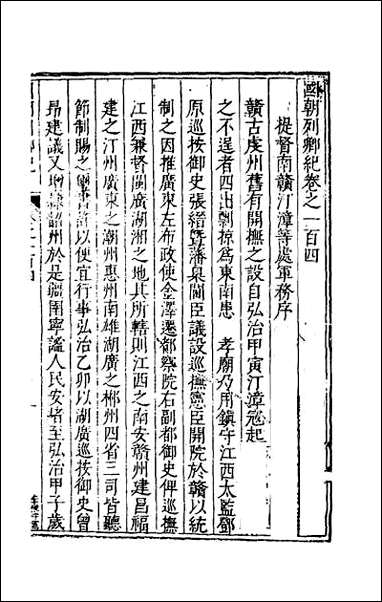 國朝列卿紀卷之一百四
提督南贛汀漳等處軍務序
贛古虔州舊有開撫之設自弘治甲寅汀漳寇起
之不逞者四出剽掠爲東南患 孝廟乃用鎮守江西太監鄧
原巡按御史張縉暨藩臬閫臣議設巡撫憲臣開院於贛以統
制之因推廣東左布政使金澤遷都察院右副都御史俾巡撫
江西兼督閩廣湖湘之地其所轄則江西之南安贛州建昌福
建之汀州廣東之潮州惠州南雄湖廣之郴州四省三司皆聽
節制賜之 以便宜行事弘治乙卯以湖廣巡按御史曾
昂建議又增 韶州於是疆圉寧謐人民安堵至弘治甲子歲